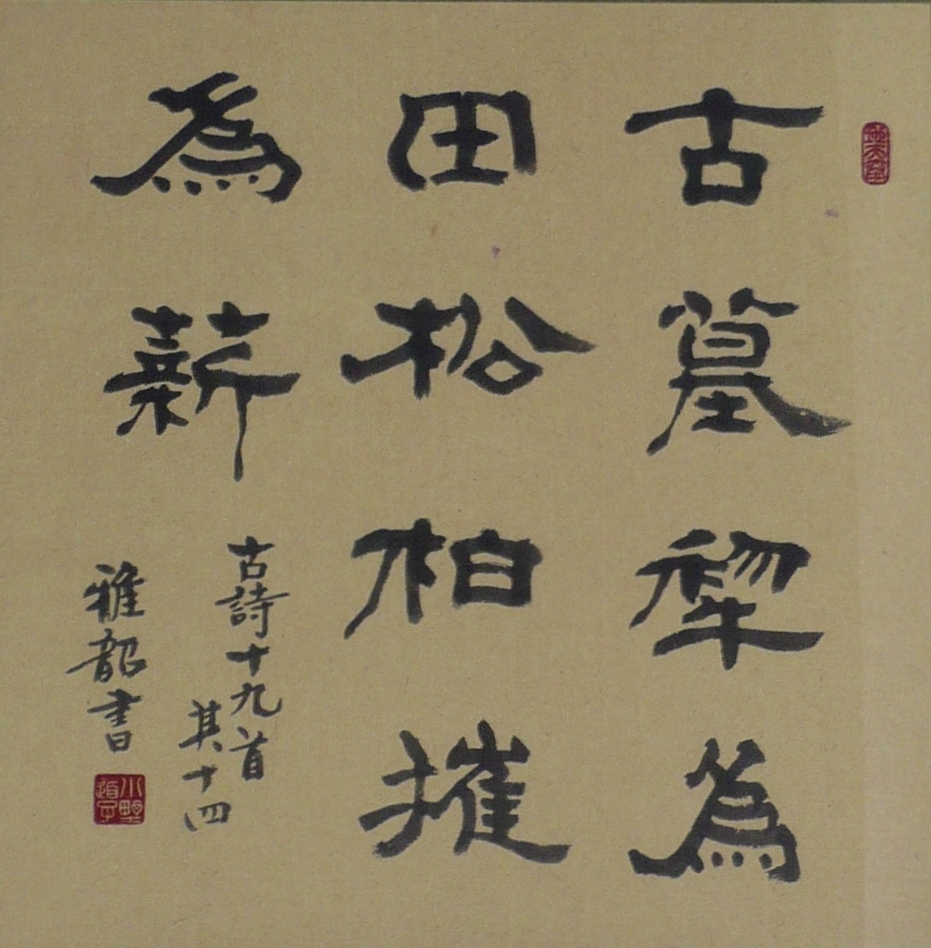 古墓犂為
田松柏摧
為薪
古詩十九首
其十四
雅韶書